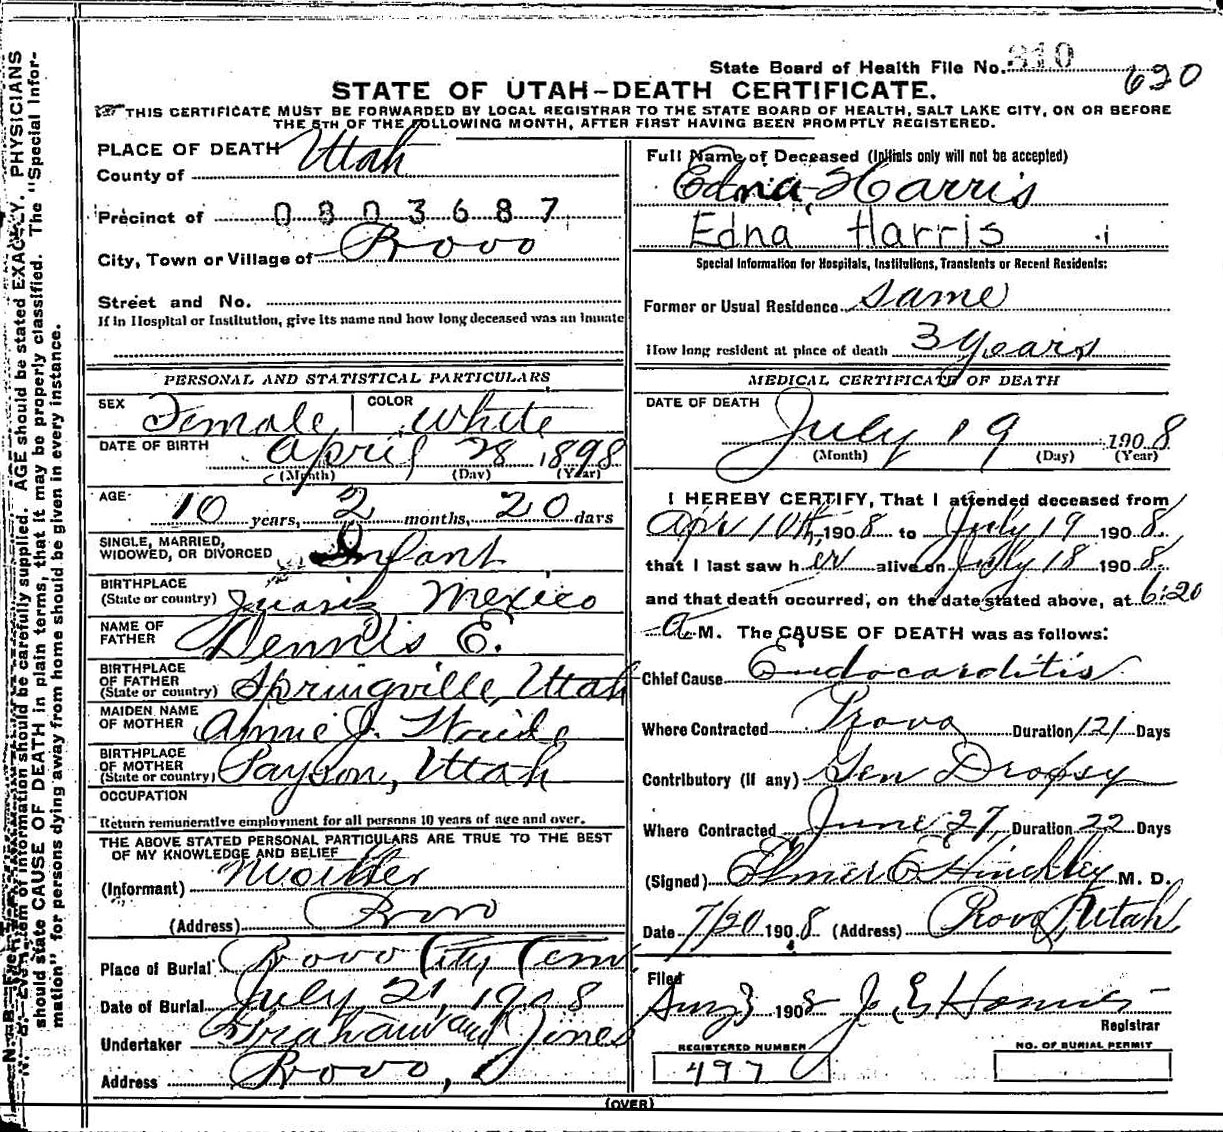 State Board of Health File No. 810
620
STATE OF UTAH-DEATH CERTIFICATE.
THIS CERTIFICATE MUST BE FORWARDED BY LOCAL REGISTRAR TO THE STATE BOARD OF HEALTH, SALT LAKE CITY, ON OR BEFORE
THE 5TH OF THE FOLLOWING MONTH, AFTER FIRST HAVING BEEN PROMPTLY REGISTERED.
PLACE OF DEATH
County of Utah
Precinct of 0803687
City, Town or Village of Provo
Street and No.
If in Hospital or Institution, give its name and how long deceased was an inmate
PERSONAL AND STATISTICAL PARTICULARS
SEX Female COLOR White
DATE OF BIRTH April 28 1898
(Month) (Day) (Year)
AGE 10 years, 2 months, 20 days
SINGLE, MARRIED,
WIDOWED, OR DIVORCED Infant
BIRTHPLACE
(State or country) Juariz Mexico
NAME OF
FATHER Dennis E.
BIRTHPLACE
OF FATHER
(State or country) Springville, Utah
MAIDEN NAME
OF MOTHER Annie J.
BIRTHPLACE
OF MOTHER
(State or country) Payson, Utah
OCCUPATION
Return remunerative employment for all persons 10 years of age and over.
THE ABOVE STATED PERSONAL PARTICULARS ARE TRUE TO THE BEST
OF MY KNOWLEDGE AND BELIEF
(Informant) Mother
(Address) Provo
Place of Burial Provo City Cem
Date of Burial July 21, 1908
Undertaker Graham and Jones
Address Provo,
Full Name of Deceased (Initials only will not be accepted)
Edna Harris
Edna Harris
Special Information for Hospitals, Institutions, Transients or Recent Residents:
Former or Usual Residence same
How long resident at place of death 3 Years
MEDICAL CERTIFICATE OF DEATH
DATE OF DEATH
July 19 1908
(Month) (Day) (Year)
I HEREBY CERTIFY, That I attended deceased from
Apr 10th, 1908 to July 19 1908
that I last saw her alive on July 18 1908
and that death occurred, on the date stated above, at 6:20
A.M. The CAUSE OF DEATH was as follows:
Chief Cause Endocarditis
Where Contracted Provo Duration 121 Days
Contributory (if any) Gen Dropsy
Where Contracted June 27, Duration 22 Days
(Signed) Elmer E Hinckley M. D.
Date 7/20 1908 (Address) Provo, Utah
Filed
Aug 3 1908 J. E.
Registrar
REGISTERED NUMBER
497
NO. OF BURIAL PERMIT
(OVER)
should state CAUSE OF DEATH in plain terms, that it may be properly classified. The "Special Infor-
mation" for persons dying away from home should be given in every instance.